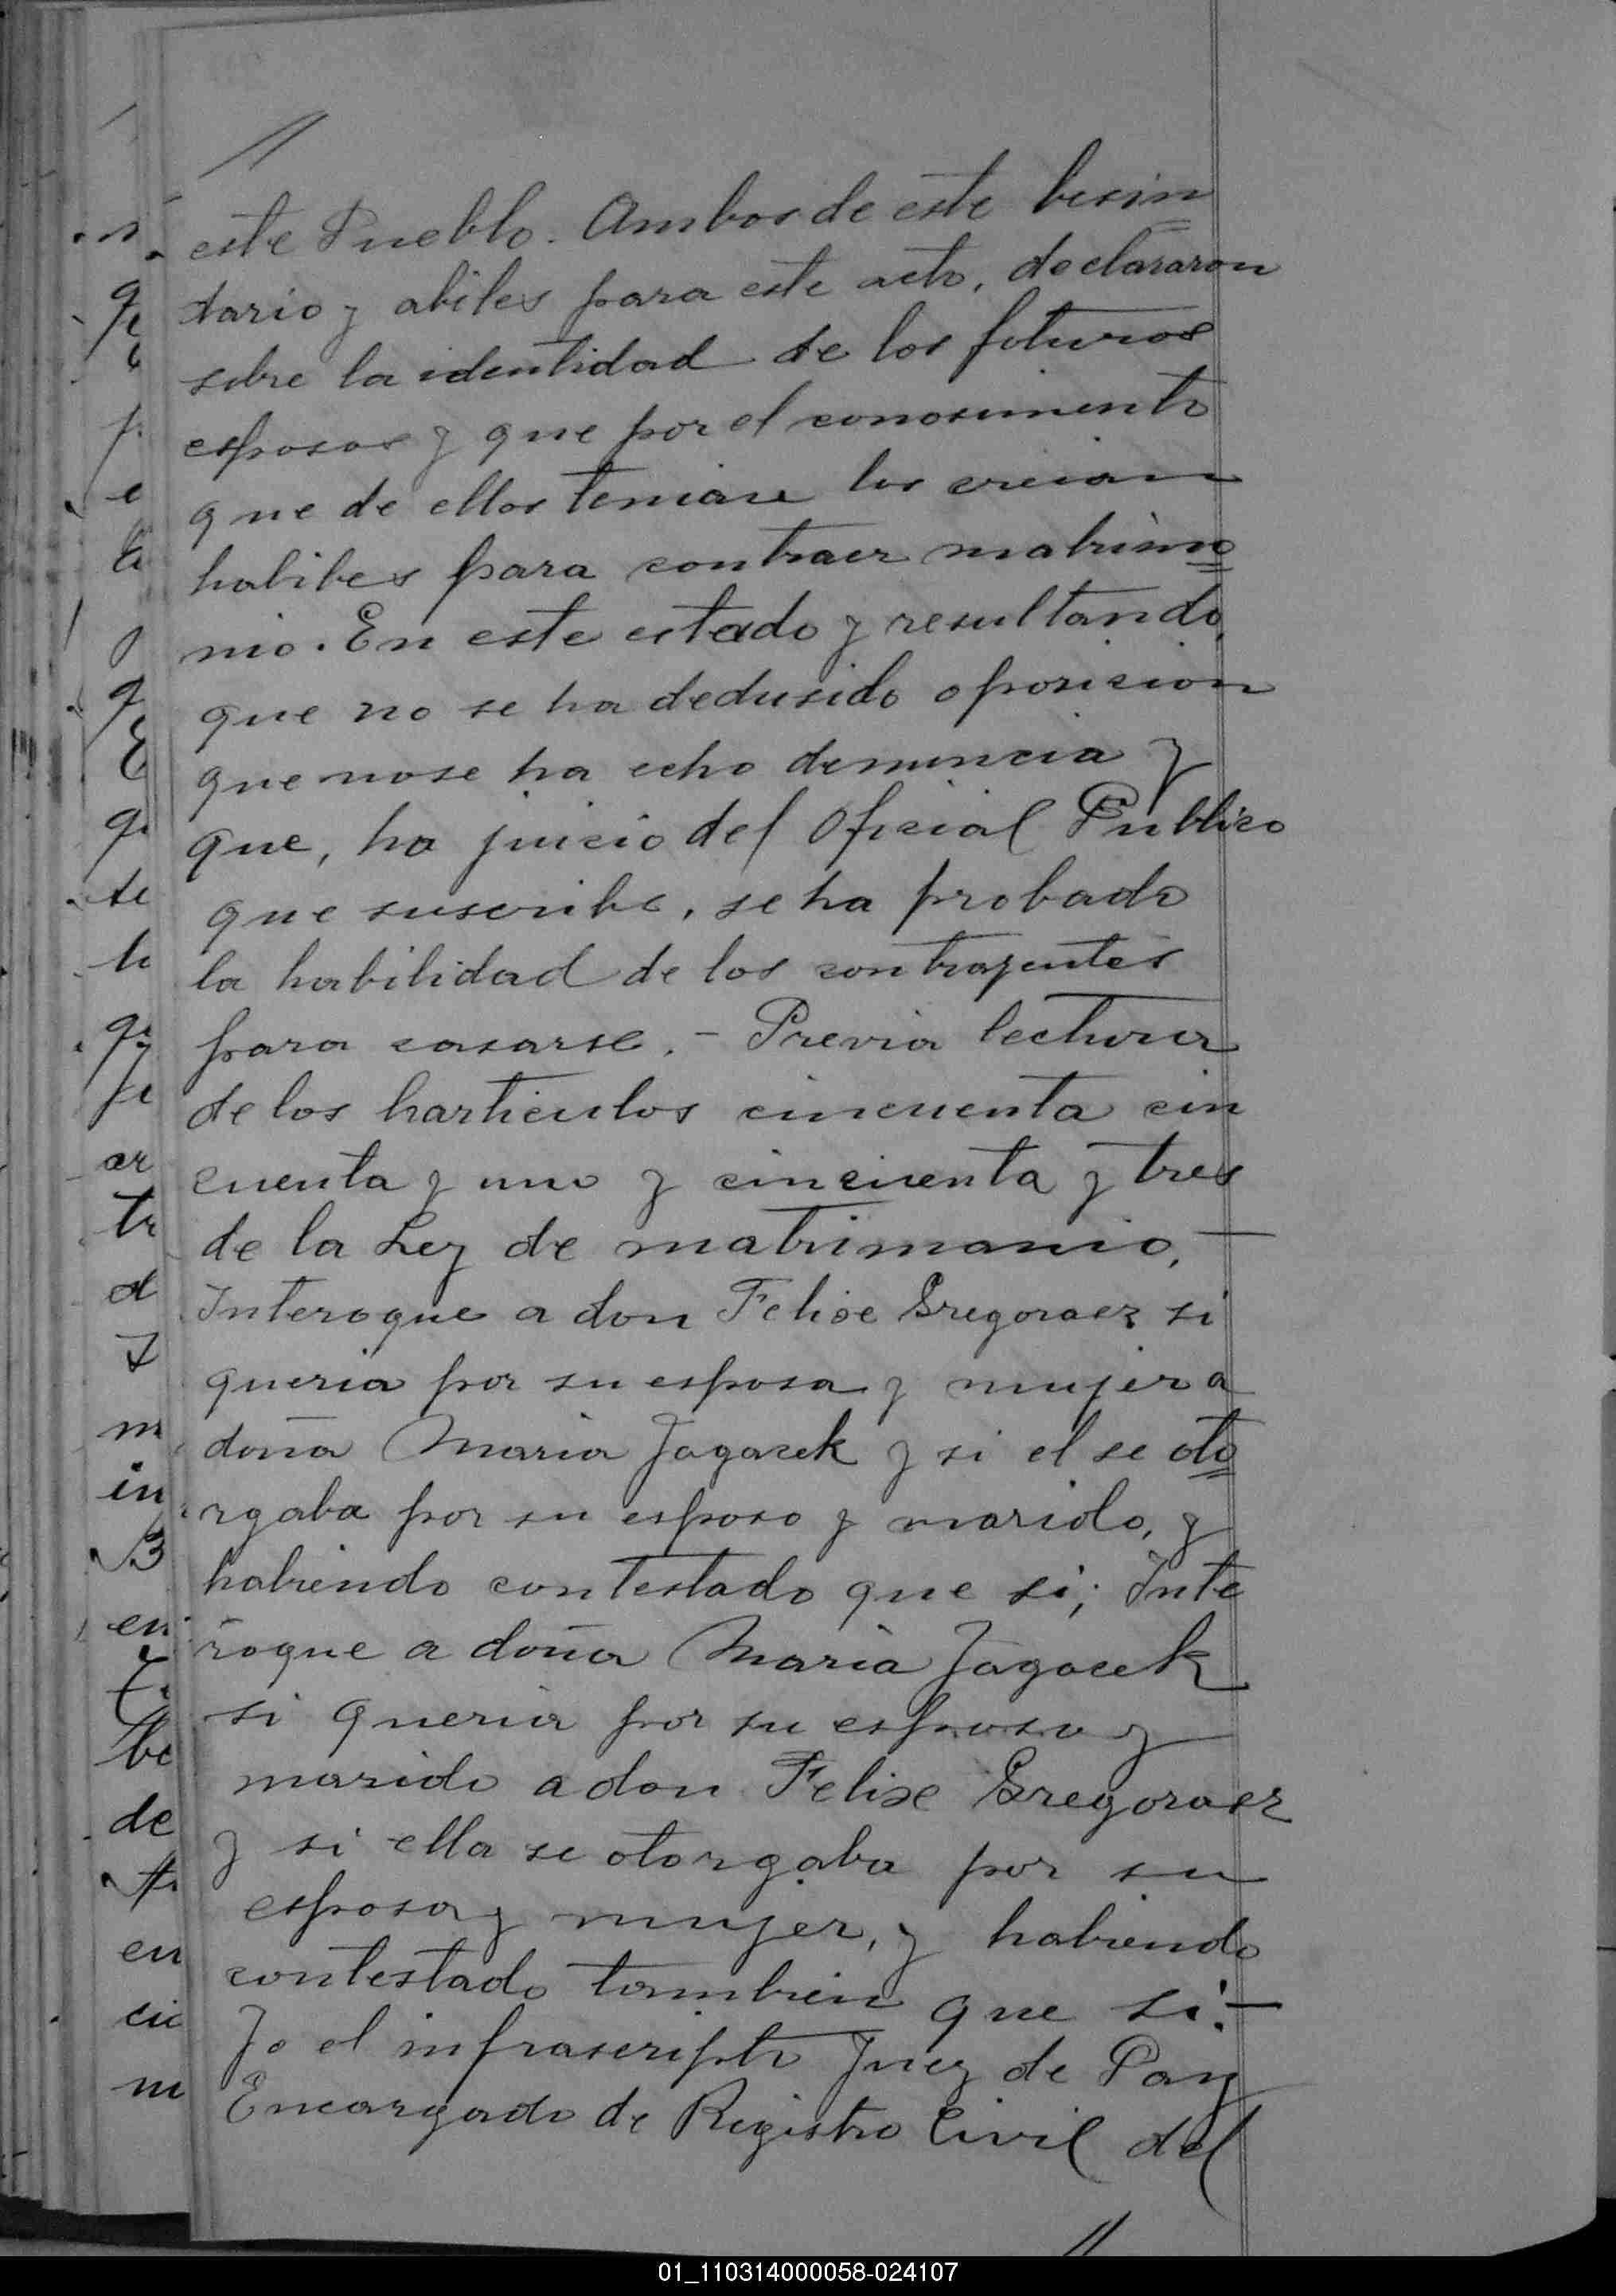 //
este Pueblo. Ambos de este besin
dario y abiles para este acto, declararon
sobre la identidad de los foturos
esposos y que por el conosimento
que de ellos tenian los creian
habiles para contraer matrimo
nio. En este estado y resultando
que no se ha dedusido oposision
que no se ha echo denuncia y
que, ha juicio del Oficial Publico
que suscribe, se ha probado
la habilidad de los contrajentes
para casarse. - Previa lectura
de los harticulos cincuenta cin
cuenta y uno y cincuenta y tres
de la Ley de matrimonio, —
Interogue a don Felise Gregoraez si
queria por su esposa y mujer a
doña Maria Jagacek y si el se oto
rgaba por su esposo y marido, y
habiendo contestado que si; Inte
rogue a doña Maria Jagacek
si queria por su esposo y
marido a don Felise Gregoraez
y si ella se otorgaba por su
esposa y mujer, y habiendo
contestado tambien que si. —
Jo el infrascripto Juez de Paz
Encargado de Registro Civil del
//
01_110314000058-024107